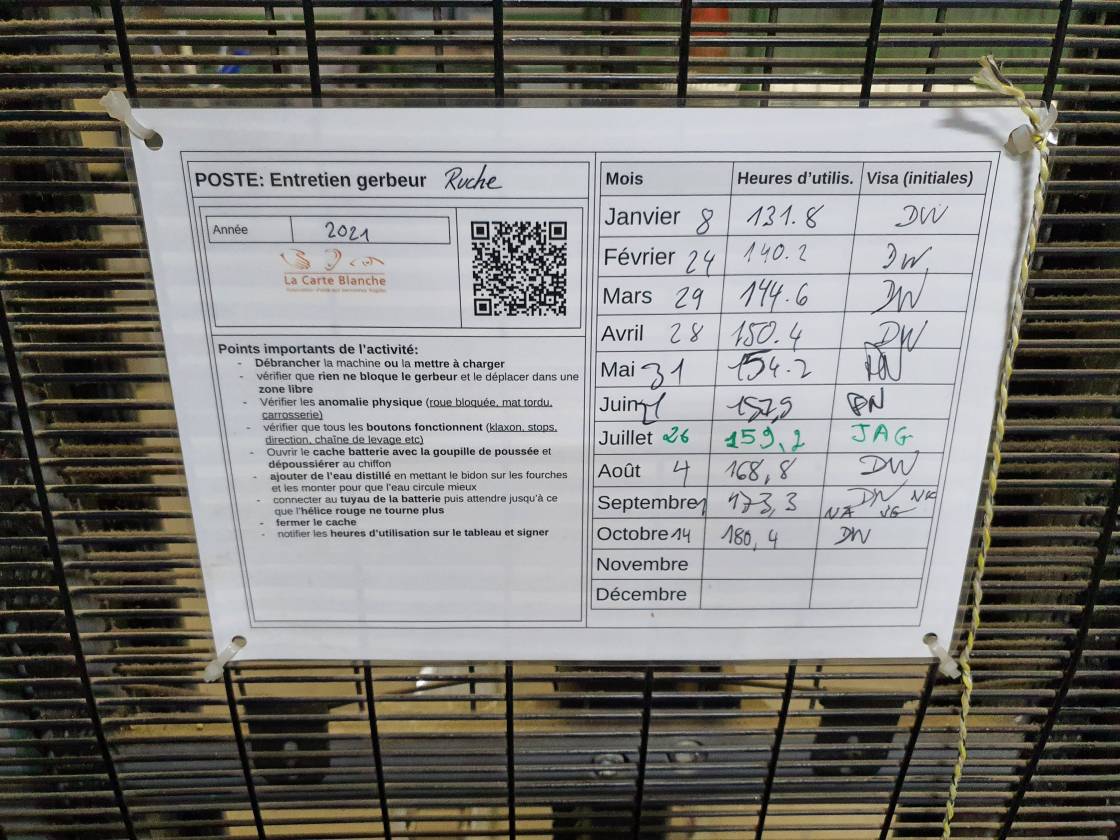 POSTE: Entretien gerbeur Ruche
Année 2021
La Carte Blanche
Points importants de l'activité:
- Débrancher la machine ou la mettre à charger
- vérifier que rien ne bloque le gerbeur et le déplacer dans une
zone libre
- Vérifier les anomalie physique (roue bloquée, mat tordu,
carrosserie)
- vérifier que tous les boutons fonctionnent (klaxon, stops,
direction, chaîne de levage etc)
- Ouvrir le cache batterie avec la goupille de poussée et
dépoussiérer au chiffon
- ajouter de l'eau distillé en mettant le bidon sur les fourches
et les monter pour que l'eau circule mieux
- connecter au tuyau de la batterie puis attendre jusqu'à ce
que l'hélice rouge ne tourne plus
- fermer le cache
- notifier les heures d'utilisation sur le tableau et signer
Mois Heures d'utilis. Visa (initiales)
Janvier 8 131.8 DW
Février 24 140.2 DW
Mars 29 144.6 DW
Avril 28 150.4 DW
Mai 31 154.2
Juin 157,9
Juillet 26 159,2 JAG
Août 4 168,8 DW
Septembre 173,3
Octobre 14 180,4 DW
Novembre
Décembre